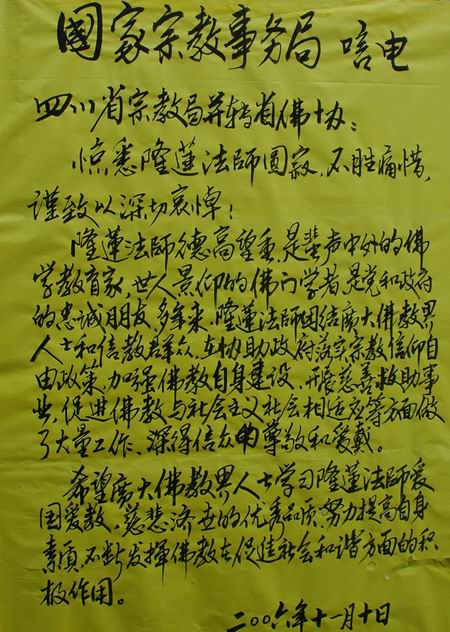 國家宗教事务局唁电
四川省宗教局并转省佛协：
惊悉隆蓮法師圓寂，不胜痛惜，
谨致以深切哀悼！
隆蓮法師德高望重，是蜚声中外的佛
学教育家，世人景仰的佛门学者，是党和政府
的忠诚朋友，多年来，隆蓮法師团结廣大佛教界
人士和信教群众，在协助政府落实宗教信仰自
由政策、加强佛教自身建设、开展慈善救助事
业、促進佛教与社会主义社会相适应等方面做
了大量工作、深得信众的尊敬和爱戴。
希望廣大佛教界人士学习隆蓮法師爱
国爱教、慈悲济世的优秀品质，努力提高自身
素质，不断发揮佛教在促進社会和谐方面的积
极作用。
二〇〇六年十一月十日